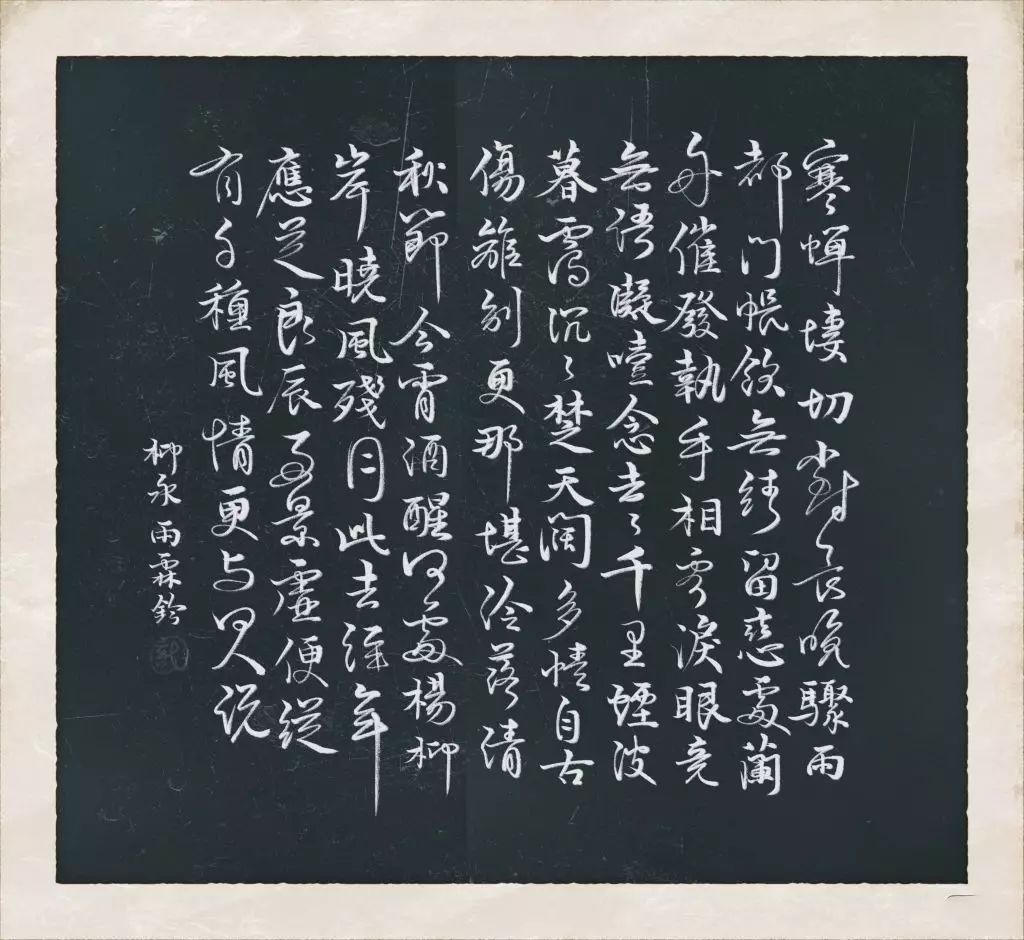 寒蟬悽切對長亭晚驟雨
都门帳飲無緒留戀處蘭
舟催發執手相看淚眼竟
無語凝噎念去々千里煙波
暮靄沉々楚天闊多情自古
傷離別更那堪冷落清
秋節今宵酒醒何處楊柳
岸曉風殘月此去經年
應是良辰好景虛便縱
有千種風情更与何人說
柳永雨霖鈴